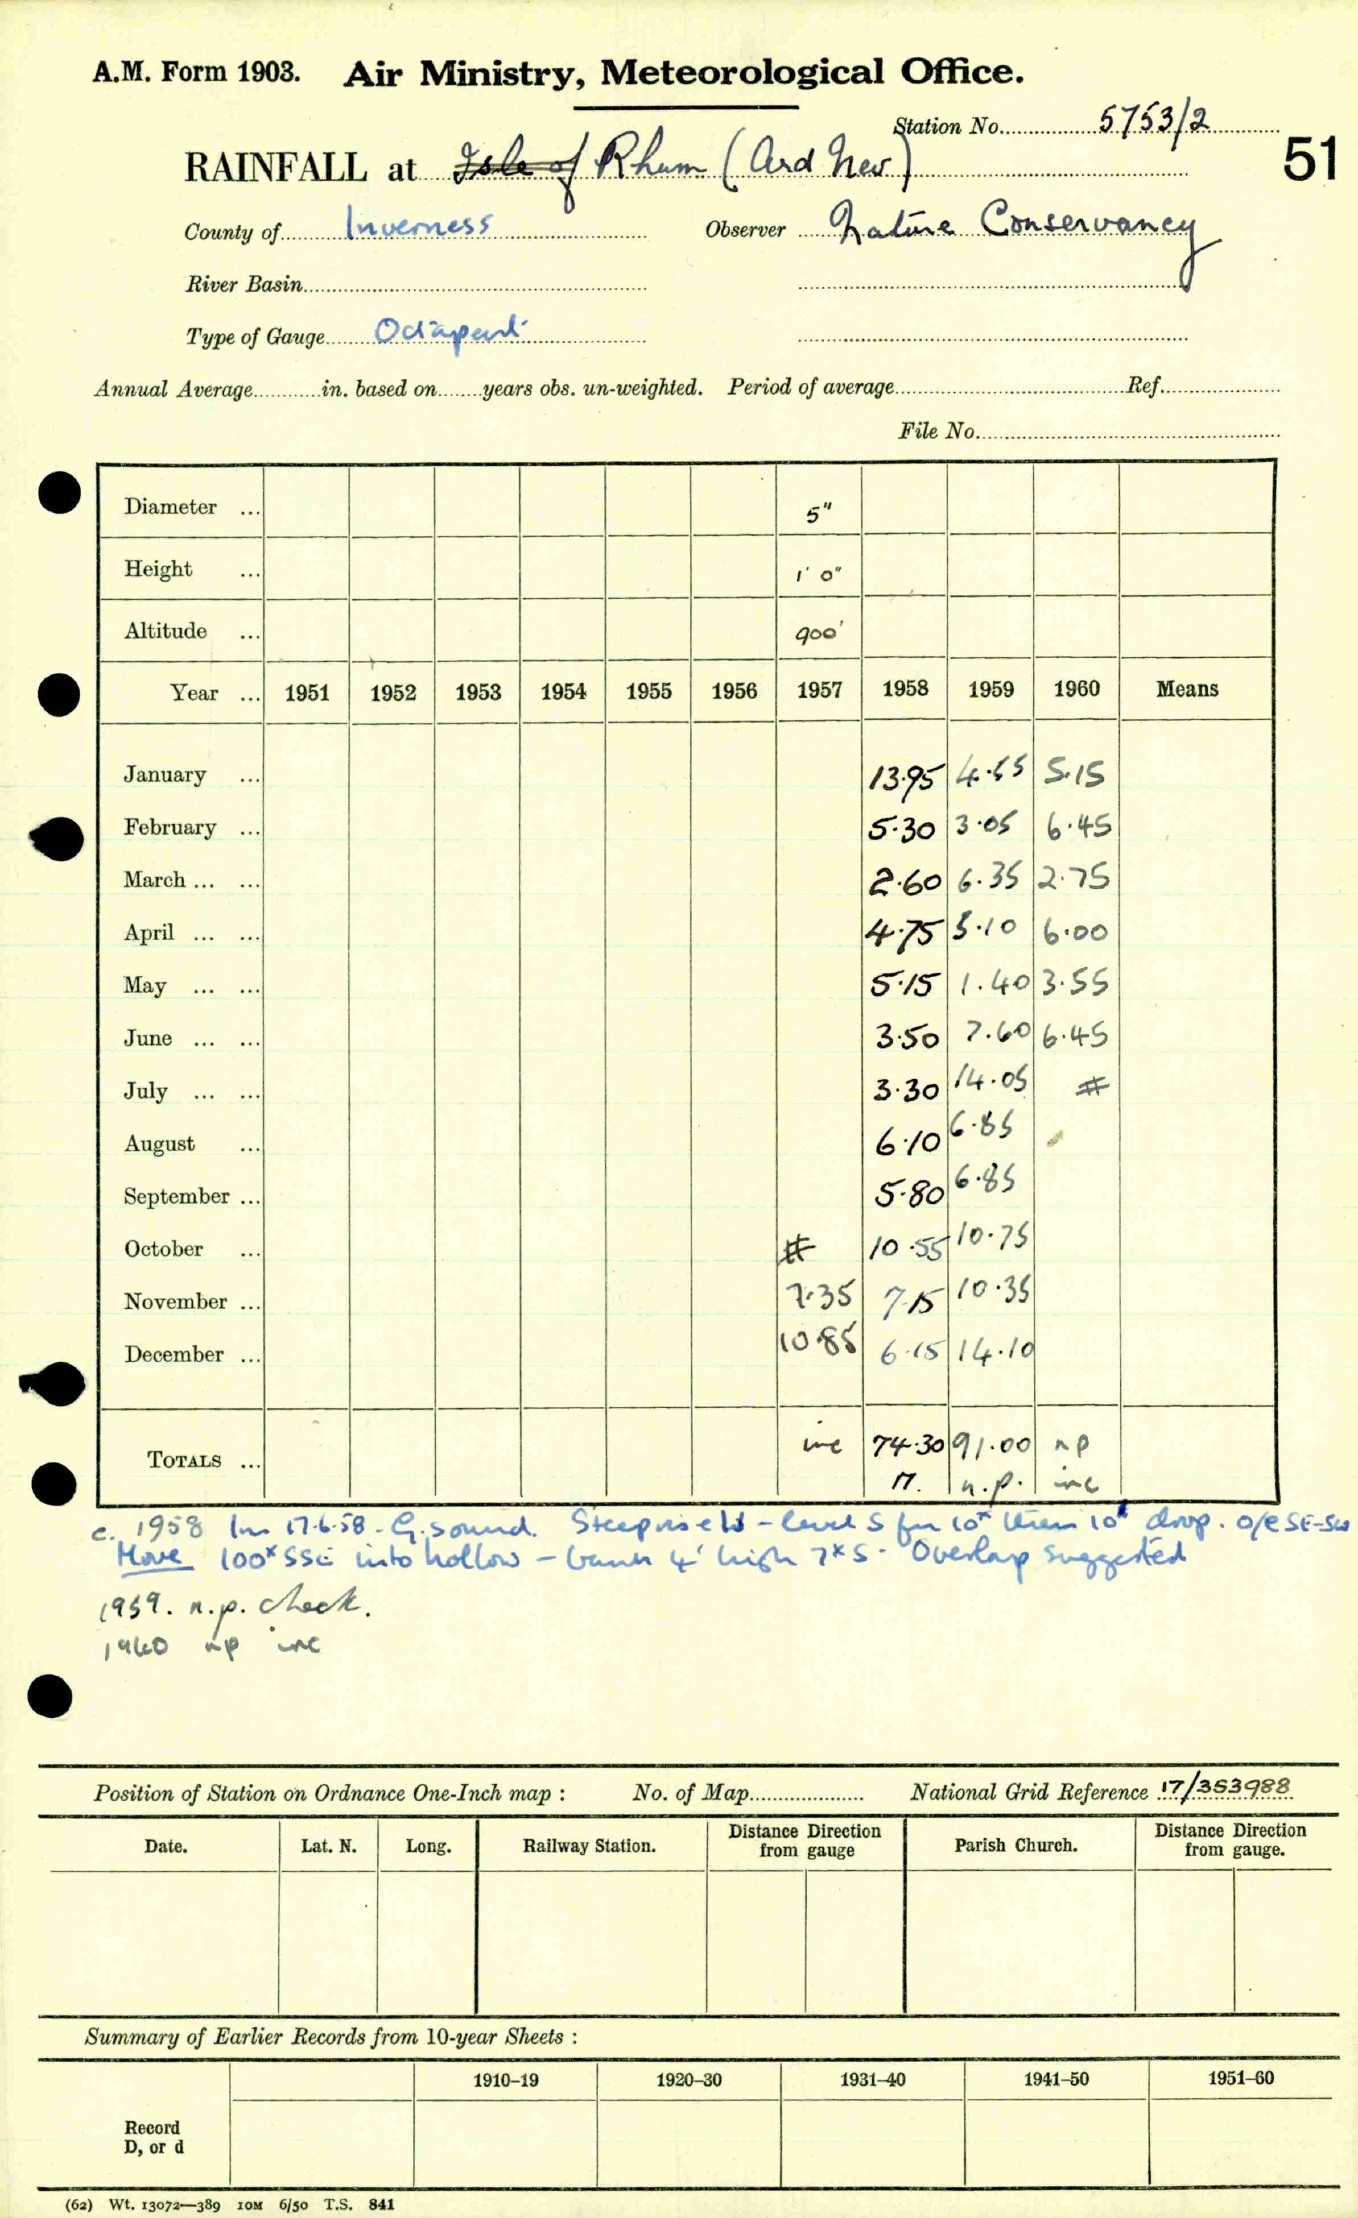 A.M. Form 1903. Air Ministry, Meteorological Office.
Station No. 5753/2
51
RAINFALL at Isle of Rhum (Ard Nev)
County of Inverness Observer Nature Conservancy
River Basin
Type of Gauge Octapent
Annual Average in. based on years obs. un-weighted. Period of average Ref.
File No.
Diameter ... 5"
Height ... 1' 0"
Altitude ... 900'
Year ... 1951 1952 1953 1954 1955 1956 1957 1958 1959 1960 Means
January ... 13.95 4.55 5.15
February ... 5.30 3.05 6.45
March ... ... 2.60 6.35 2.75
April ... ... 4.75 5.10 6.00
May ... ... 5.15 1.40 3.55
June ... ... 3.50 7.60 6.45
July ... ... 3.30 14.05 #
August ... 6.10 6.85
September ... 5.80 6.85
October ... # 10.55 10.75
November ... 7.35 7.15 10.35
December ... 10.85 6.15 14.10
TOTALS ... inc 74.30 91.00 np
n.p. inc
c. 1958 Ins 17.6.58 - G. sound. Steep rise W - level S for 10x then 10' drop. O/e SE-SW
Move 100x SSE into hollow - bank 4' high 7x S. Overlap suggested
1959. n.p. check.
1960 np inc
Position of Station on Ordnance One-Inch map : No. of Map National Grid Reference 17/353988
Date. Lat. N. Long. Railway Station. Distance Direction from gauge Parish Church. Distance Direction from gauge.
Summary of Earlier Records from 10-year Sheets :
1910–19 1920–30 1931–40 1941–50 1951–60
Record
D, or d
(62) Wt. 13072—389 10M 6/50 T.S. 841